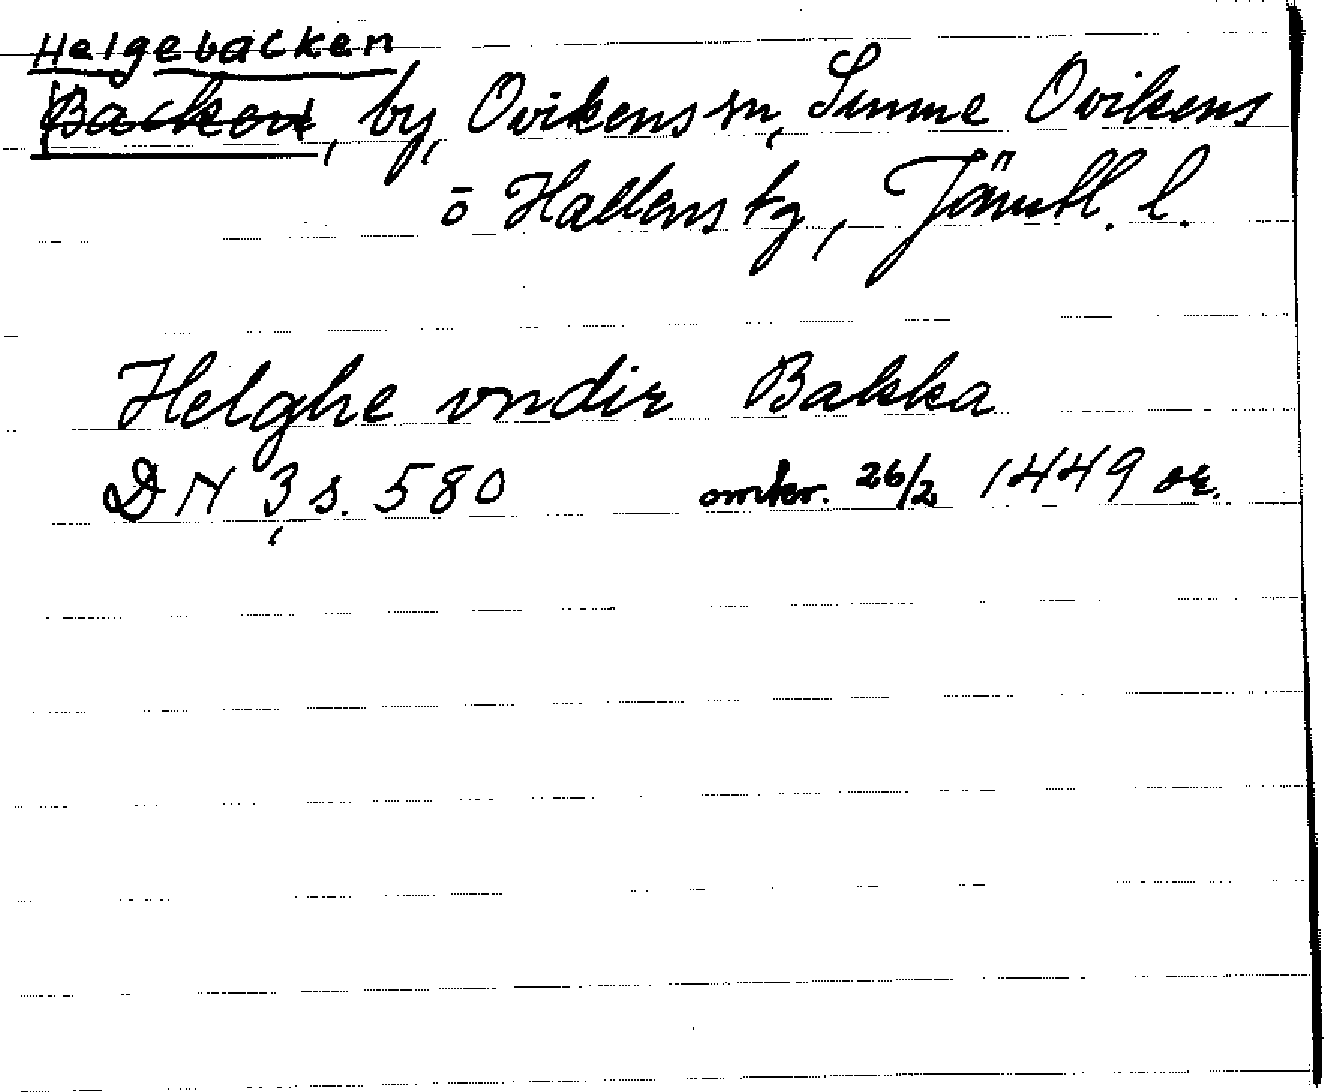 Helgebacken
Backen, by, Ovikens sn, Sunne Ovikens
o Hallens tg, Jämtl. l.
Helghe vndir Bakka
DN 3, s. 580 omkr. 26/2 1449 or.